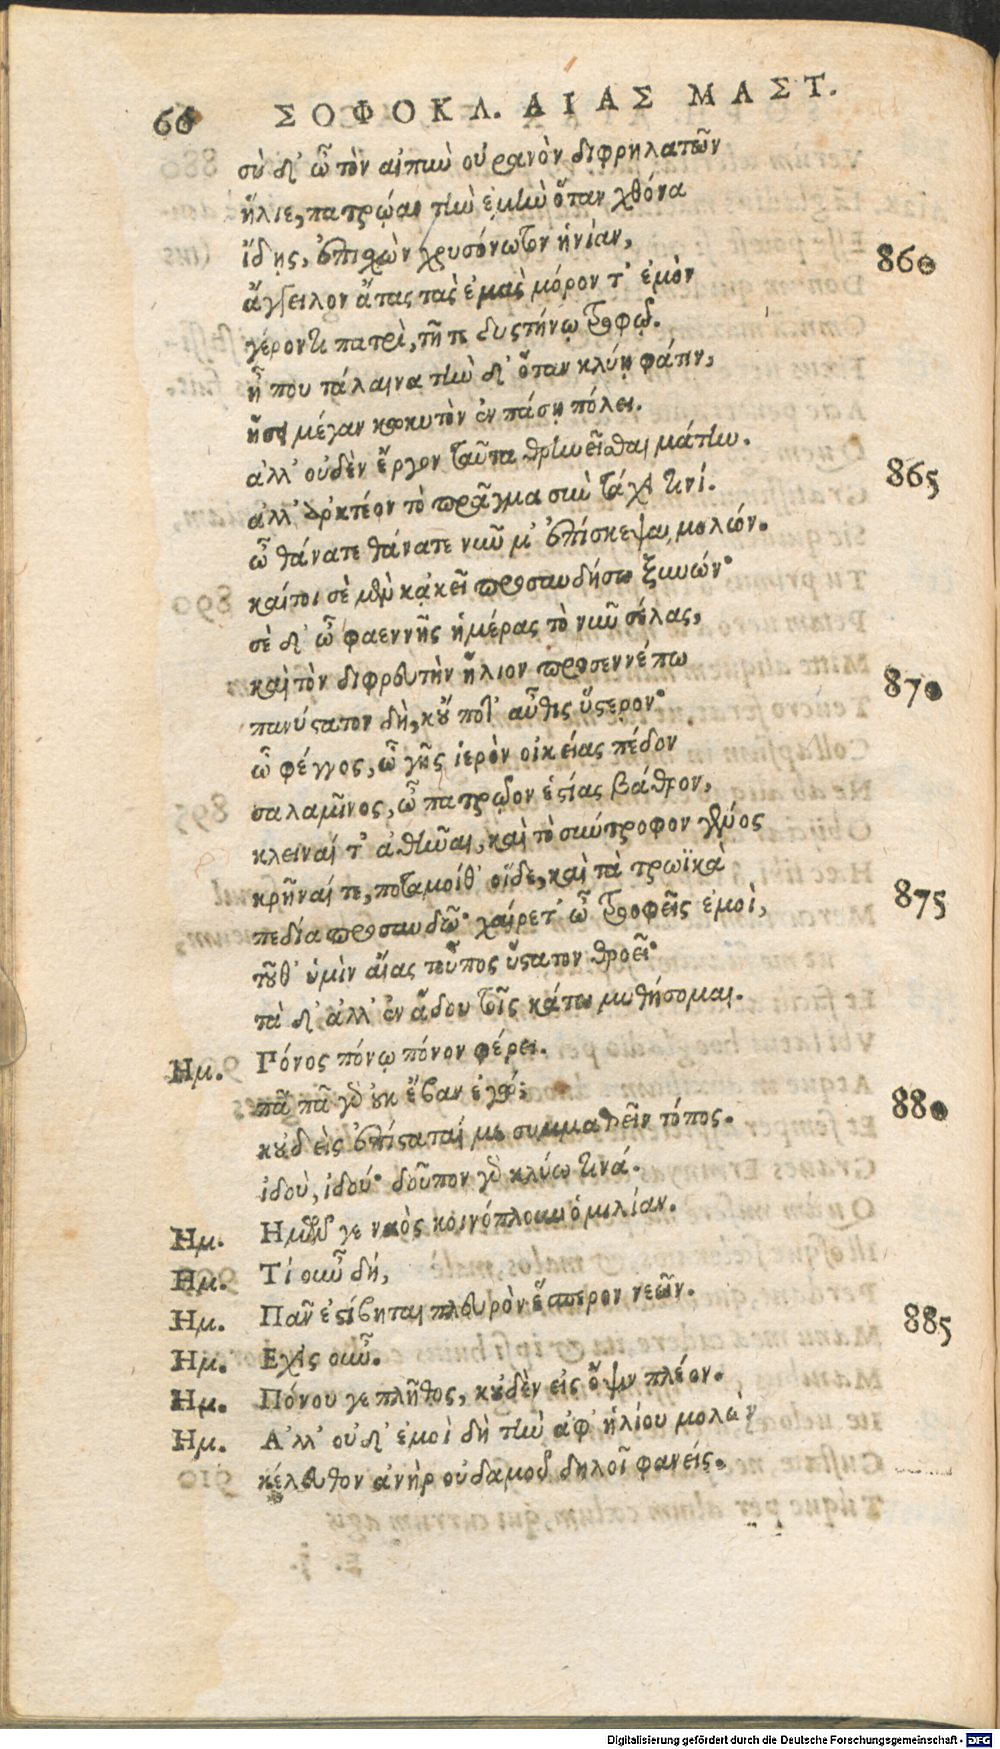 66 ΣΟΦΟΚΛ. ΑΙΑΣ ΜΑΣΤ.
σὺ δ' ὦ τὸν αἰπὺν οὐρανὸν διφρηλατῶν
ἥλιε, πατρῴαν τὴν ἐμὴν ὅταν χθόνα
ἴδῃς, ἐπισχὼν χρυσόνωτον ἡνίαν, 860
ἄγγειλον ἄτας τὰς ἐμὰς μόρον τ' ἐμὸν
γέροντι πατρὶ, τῇ τε δυστήνῳ τροφῷ.
ἦ που τάλαινα τὴν δ' ὅταν κλύῃ φάτιν,
ἥσει μέγαν κωκυτὸν ἐν πάσῃ πόλει.
ἀλλ' οὐδὲν ἔργον ταῦτα θρηνεῖσθαι μάτην. 865
ἀλλ' ἀρκτέον τὸ πρᾶγμα σὺν τάχει τινί.
ὦ θάνατε θάνατε νῦν μ' ἐπίσκεψαι μολών.
καίτοι σὲ μὲν κᾀκεῖ προσαυδήσω ξυνών·
σὲ δ' ὦ φαεννῆς ἡμέρας τὸ νῦν σέλας,
καὶ τὸν διφρευτὴν ἥλιον προσεννέπω 870
πανύστατον δὴ, κοὔ ποτ' αὖθις ὕστερον·
ὦ φέγγος, ὦ γῆς ἱερὸν οἰκείας πέδον
σαλαμῖνος, ὦ πατρῷον ἑστίας βάθρον,
κλειναί τ' ἀθῆναι, καὶ τὸ σύντροφον γένος
κρῆναί τε, ποταμοίθ' οἵδε, καὶ τὰ τρωϊκὰ 875
πεδία προσαυδῶ· χαίρετ' ὦ τροφεῖς ἐμοὶ,
τοῦθ' ὑμὶν αἴας τοὖπος ὕστατον θροεῖ·
τὰ δ' ἀλλ' ἐν ᾅδου τοῖς κάτω μυθήσομαι.
Ημ. Γόνος πόνῳ πόνον φέρει.
πᾶ πᾶ γὰρ οὐκ ἔβαν ἐγώ; 880
κοὐδεὶς ἐπίσταταί με συμμαθεῖν τόπος.
ἰδοὺ, ἰδού· δοῦπον γὰρ κλύω τινά.
Ημ. Ημῶν γε ναὸς κοινόπλουν ὁμιλίαν.
Ημ. Τί οὖν δή,
Ημ. Πᾶν ἐστίβηται πλευρὸν ἕσπερον νεῶν. 885
Ημ. Εχεις οὖν.
Ημ. Πόνου γε πλῆθος, κοὐδὲν εἰς ὄψιν πλέον.
Ημ. Α'λλ' οὐδ' ἐμοὶ δὴ τὴν ἀφ' ἡλίου μολὼν
κέλευθον ἀνὴρ οὐδαμοῦ δηλοῖ φανείς.
Digitalisierung gefördert durch die Deutsche Forschungsgemeinschaft - DFG